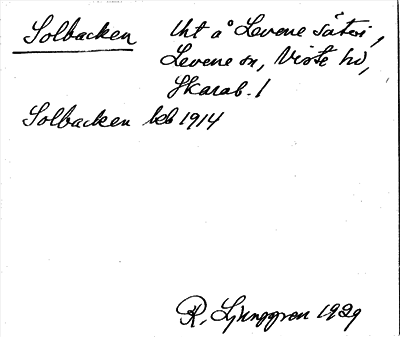 Solbacken lht å Levene säteri,
Levene sn, Viste hd,
Skarab. l
Solbacken leb 1914
R. Ljunggren 1929